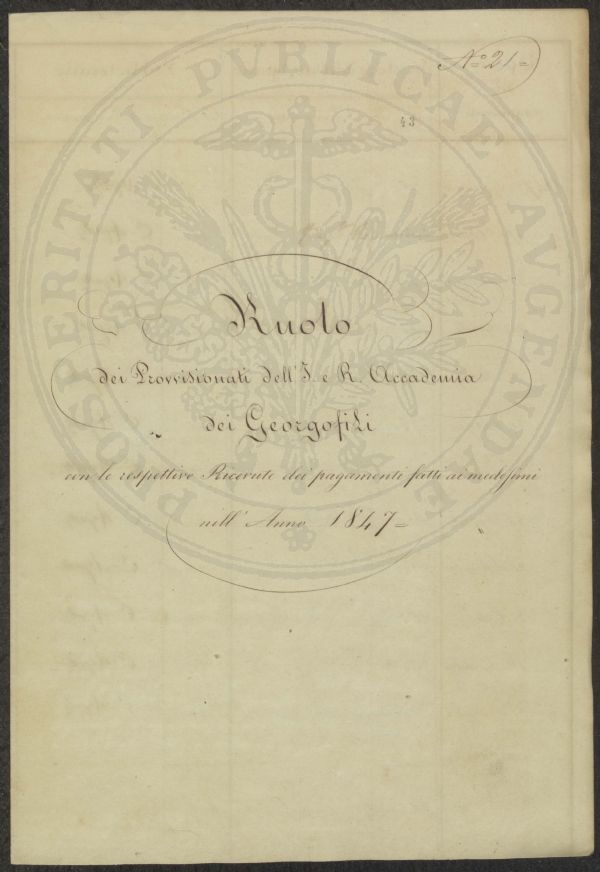 N.° 21=
43
PROSPERITATI PVBLICAE AVGENDAE
Ruolo
dei Provvisionati dell'I. e R. Accademia
dei Georgofili
con le respettive Ricevute dei pagamenti fatti ai medesimi
nell'Anno 1847=